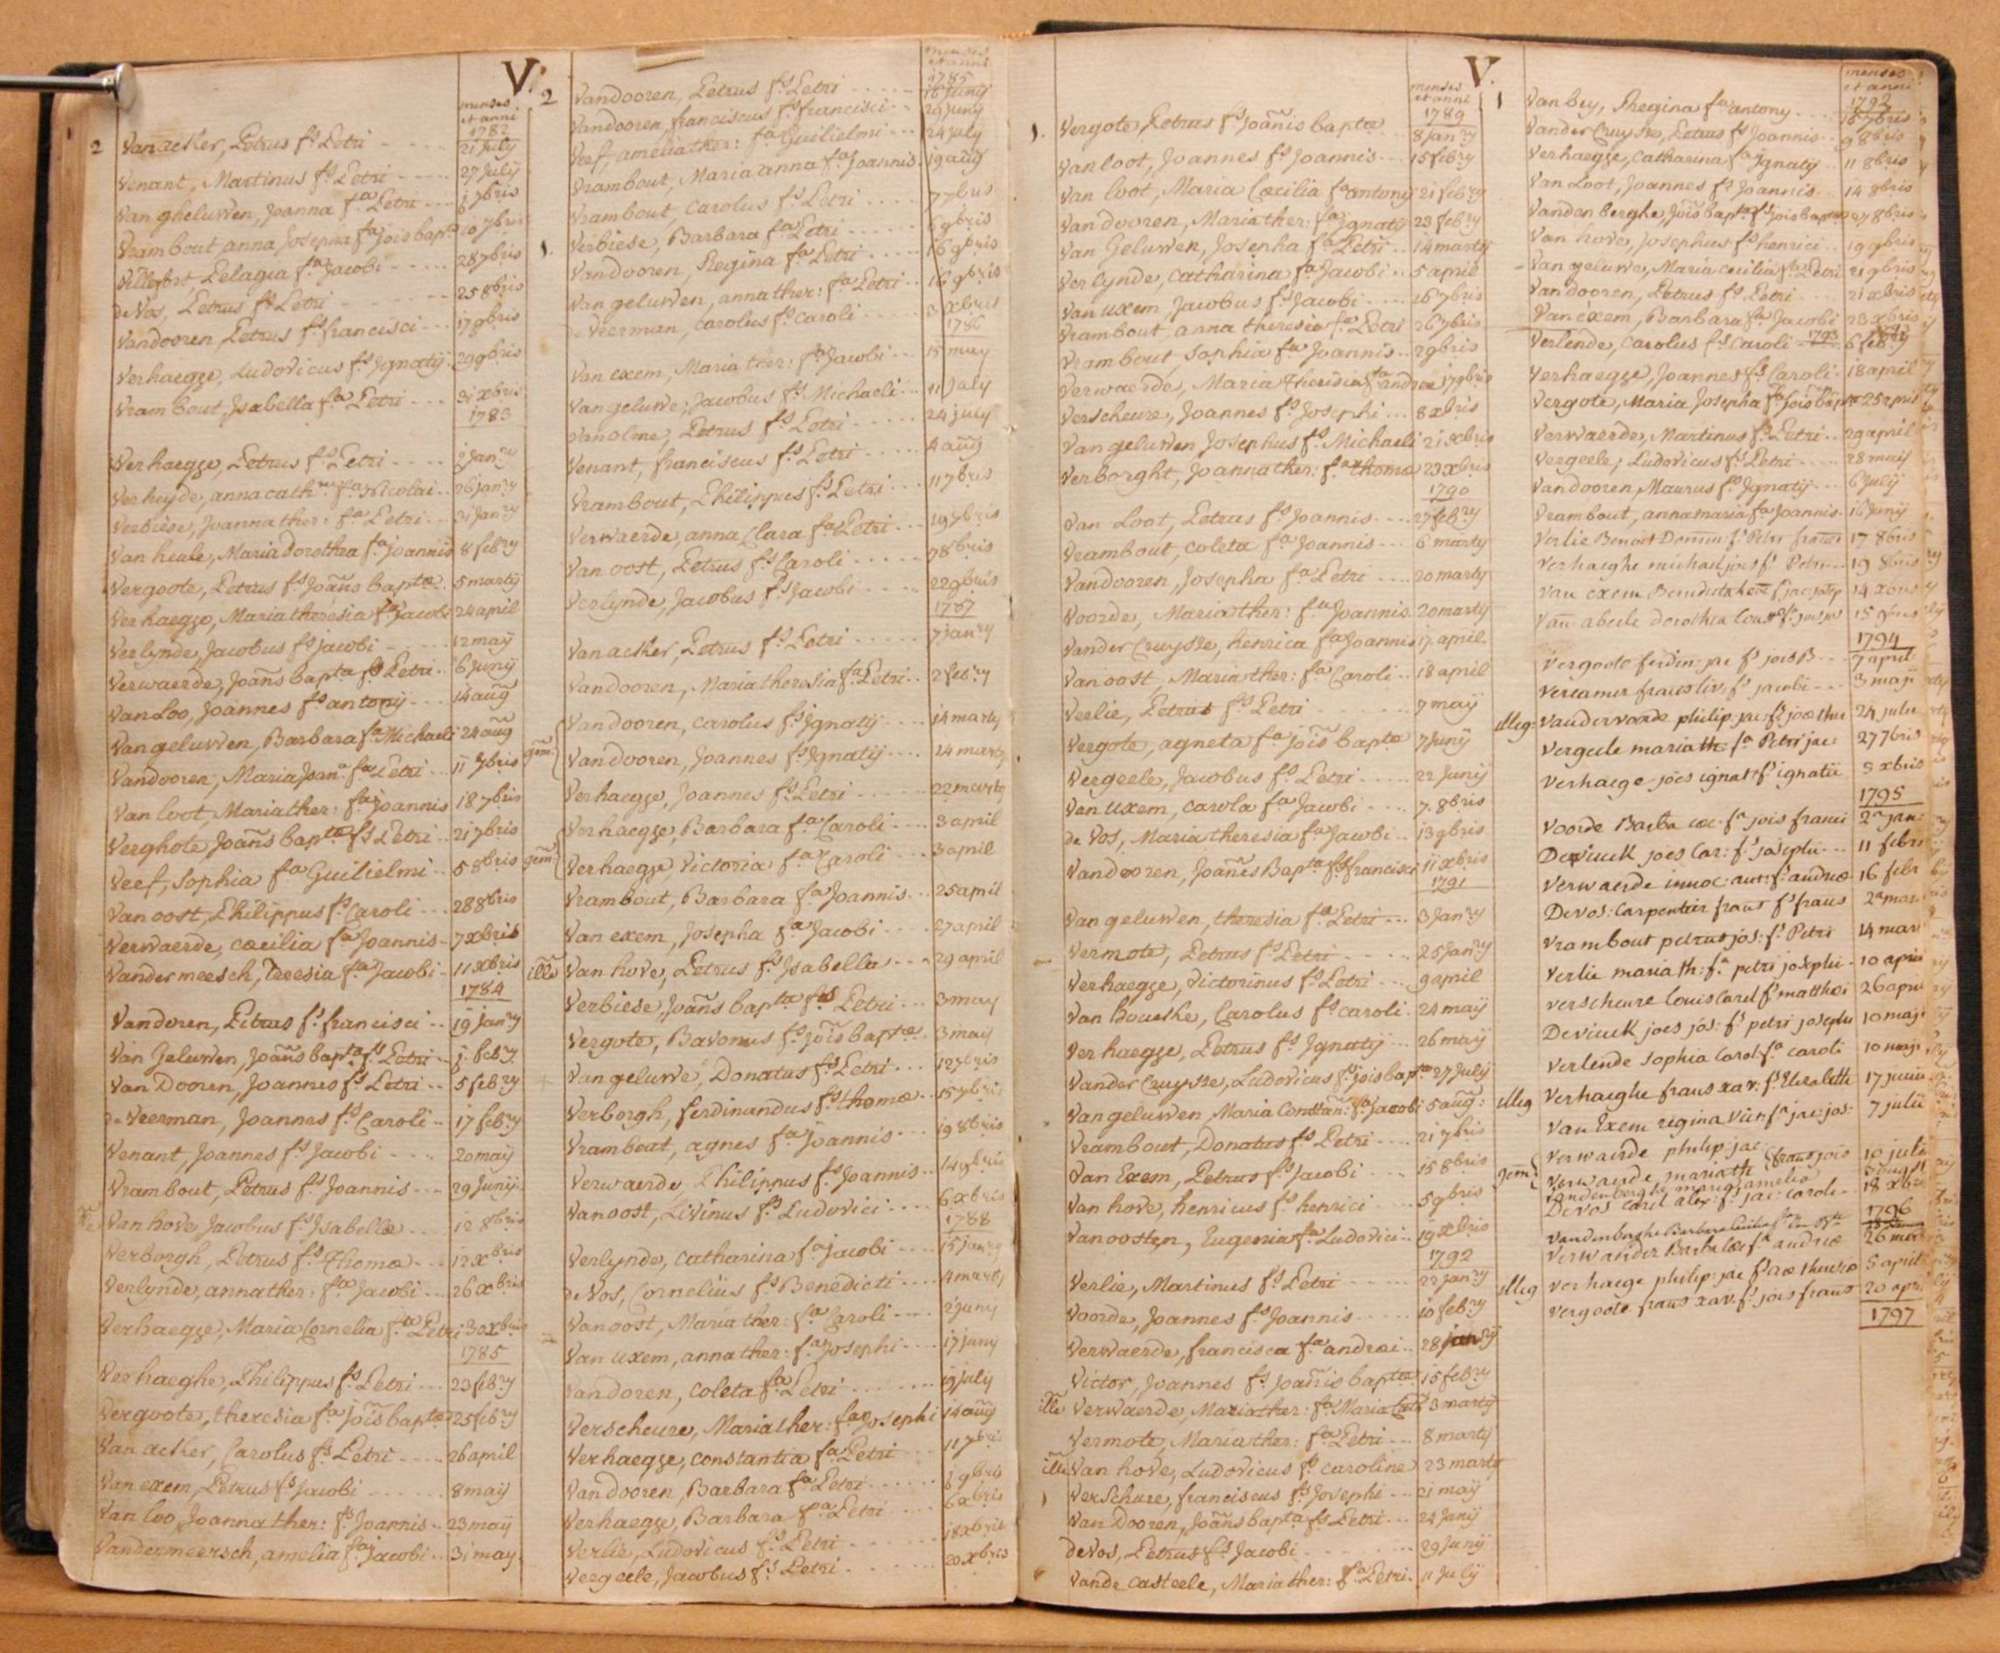 V.
menses
et anni
1782
2 Van acker, Petrus fs Petri 21 July
Venant, Martinus fs Petri 27 July
Van gheluwen, Joanna fa Petri 6 7bris
Vrambout anna Josepha fa Jois bapta 10 7bris
Pelagia fa Jacobi 28 7bris
de Vos, Petrus fs Petri 25 8bris
Vandooren, Petrus fs francisci 17 9bris
Verhaegze, Ludovicus fs Ignatij 29 9bris
Vrambout, Isabella fa Petri 31 xbris
1783
Verhaegze, Petrus fs Petri Janry
Verheyde, anna cath fa Nicolai 26 Janry
Verbiese, Joanna ther: fa Petri 31 Janry
Van heule, Maria Dorothea fa Joannis 8 febry
Vergoote, Petrus fs Joãnis bapta 5 martij
Verhaegze, Maria theresia fa Jacobi 24 april
Verlynde, Jacobus fs jacobi 12 maij
Verwaerde, Joãnis bapta fs Petri 6 Junij
Van Loo, Joannes fs antonij 14 aug
Van geluwen, Barbara fa Michaeli 24 aug
Vandooren, Maria Joana fa Petri 11 7bris
Van loot, Maria ther: fa Joannis 18 7bris
Verghote Joãns bapta fs Petri 21 7bris
Veef, Sophia fa Guilielmi 5 8bris
Van oost, Philippus fs Caroli 28 8bris
Verwaerde, cæcilia fa Joannis 7 xbris
Vandermeesch, Teresia fa Jacobi 11 xbris
1784
Vandoren, Petrus fs francisci 19 Janry
Van Geluwen, Joãns bapta fs Petri j. febry
Van Dooren, Joannes fs Petri 5 febry
de Veerman, Joannes fs Caroli 17 febry
Venant, Joannes fs Jacobi 20 maij
Vrambout, Petrus fs Joannis 29 Junij
Van hove Jacobus fs Isabellæ 12 8bris
Verborgh, Petrus fs Thomæ 12 xbris
Verlynde, anna ther: fa Jacobi 26 xbris
Verhaegze, Maria Cornelia fa Petri 30 xbris
1785
Verhaeghe, Philippus fs Petri 23 febry
Vergoote, theresia fa Joĩs bapta 25 febry
Van acker, Carolus fs Petri 26 april
Van exem, Petrus fs Jacobi 8 maij
Van loo, Joanna ther: fs Joannis 23 maij
Vandermeersch, amelia fa Jacobi 31 may
menses
et anni
1785
2 Vandooren, Petrus fs Petri 16 Junij
Vandooren, franciscus fs francisci 20 Junij
Veef, amelia ther: fa Guilielmi 24 july
Vrambout, Maria anna fa Joannis 19 aug
Vrambout, Carolus fs Petri 7 7bris
Verbiese, Barbara fa Petri 6 9bris
Vandooren, Regina fa Petri 16 9bris
Van geluwen, anna ther: fa Petri 16 9bris
de Veerman, Carolus fs Caroli 3 xbris
1786
Van exem, Maria ther: fa Jacobi 15 may
Van geluwe, Jacobus fs Michaeli 11 July
Van olme, Petrus fs Petri 24 july
Venant, franciscus fs Petri 4 aug
Vrambout, Philippus fs Petri 11 7bris
Verwaerde, anna Clara fa Petri 19 7bris
Van oost, Petrus fs Caroli 9 8bris
Verlynde, Jacobus fs Jacobi 22 9bris
1787
Van acker, Petrus fs Petri 7 janry
Vandooren, Maria theresia fa Petri 2 febry
gem: Vandooren, Carolus fs Ignatij 14 martij
Vandooren, Joannes fs Ignatij 14 martij
Verhaegze, Joannes fs Petri 22 martij
gem: Verhaegze, Barbara fa Caroli 3 april
Verhaegze Victoria fa Caroli 3 april
Vrambout, Barbara fa Joannis 25 april
Van exem, Josepha fa Jacobi 27 april
ille Van hove, Petrus fs Isabella 29 april
Verbiese, Joãns bapta fs Petri 3 may
Vergote, Bavonus fs Joĩs baptæ 3 maij
Van geluwe, Donatus fs Petri 12 7bris
Verborgh, ferdinandus fs thomæ 15 7bris
Vrambout, agnes fa Joannis 19 8bris
Verwaerde, Philippus fs Joannis 14 9bris
Van oost, Livinus fs Ludovici 6 xbris
1788
Verlynde, catharina fa jacobi 15 janry
de Vos, Cornelius fs Benedicti 4 martij
Van oost, Maria ther: fa Caroli 2 juny
Van uxem, anna ther: fa Josephi 17 juny
Vandoren, coleta fa Petri 19 july
Verscheure, Maria ther: fa Josephi 14 aug
Verhaegze, constantia fa Petri 11 7bris
Vandooren, Barbara fa Petri 9bris
Verhaegze, Barbara fa Petri 6 xbris
Verlie, Ludovicus fs Petri 18 xbris
Vergeele, Jacobus fs Petri 20 xbris
V.
menses
et anni
1789
1. Vergote, Petrus fs Joãnis bapta 8 Janry
Van loot, Joannes fs Joannis 15 febry
Van loot, Maria Cæcilia fa antony 21 febry
Van dooren, Maria ther: fa Ignatij 23 febry
Van Geluwen, Josepha fa Petri 14 martij
Verlynde, catharina fa Jacobi 5 april
Van uxem, Jacobus fs Jacobi 16 7bris
Vrambout, anna theresia fa Petri 26 7bris
Vrambout, Sophia fa Joannis 2 9bris
Verwaerde, Maria Theresia fa andreæ 17 9bris
Verscheure, Joannes fs Josephi 8 xbris
Van geluwen Josephus fs Michaeli 21 xbris
Verborght, Joanna ther: fa thomæ 23 xbris
1790
Van Loot, Petrus fs Joannis 27 febry
Vrambout, coleta fa Joannis 6 marty
Vandooren, Josepha fa Petri 20 marty
Voorde, Maria ther: fa Joannis 20 martij
Vander Cruysse, henrica fa Joannis 17 april
Van oost, Maria ther: fa Caroli 18 april
Verlie, Petrus fs Petri 7 maij
Vergote, agneta fa joĩs baptæ 7 Junij
Vergeele, Jacobus fs Petri 22 Junij
Van uxem, carola fa Jacobi 7. 8bris
de Vos, Maria theresia fa Jacobi 13 9bris
Vandooren, Joãnes Bapta fs francisci 11 xbris
1791
Van geluwen, theresia fa Petri 3 Janry
Vermote, Petrus fs Petri 25 Janry
Verhaegze, Victorinus fs Petri 9 april
Van Houtte, Carolus fs caroli 24 maij
Verhaegze, Petrus fs Ignatij 26 maij
Vander Cruysse, Ludovicus fs jois bapta 27 July
Van geluwen Maria Constan: fa Jacobi 5 aug:
Vrambout, Donatus fs Petri 21 7bris
Van Exem, Petrus fs Jacobi 15 8bris
Van hove, henricus fs henrici 5 9bris
Van oosten, Eugenia fa Ludovici 19 xbris
1792
Verlie, Martinus fs Petri 22 janry
Voorde, Joannes fs Joannis 10 febry
Verwaerde, francisca fa andreæi 28
Victor, Joannes fs Joãnis baptæ 15 febry
ille Verwaerde, Maria ther: fa Maria Cath 3 martij
Vermote, Maria ther: fa Petri 8 martij
ille Van hove, Ludovicus fs caroline 23 martij
VerSchure, franciscus fs Josephi 21 maij
Van Dooren, Joãns bapta fs Petri 24 Junij
de Vos, Petrus fs Jacobi 29 Junij
Vande Casteele, Maria ther: fa Petri 11 July
menses
et anni
1792
1 Van bey, Regina fa antony 16 7bris
Vander Cruysse, Petrus fs Joannis 9 8bris
Verhaegze, catharina fa Ignatij 11 8bris
Van Loot, Joannes fs Joannis 14 8bris
Vanden berghe, Joĩs bapta fs jois baptæ 27 8bris
Van hove, Josephus fs henrici 19 9bris
Van geluwe, Maria cæcilia fa Petri 21 9bris
Vandooren, Petrus fs Petri 21 xbris
Van exem, Barbara fa Jacobi 23 xbris
Verlende, Carolus fs Caroli 1793 6 febry
Verhaegze, Joannes fs Caroli 18 april
Vergote, Maria Josepha fa Jois baptæ 25 april
Verwaerde, Martinus fs Petri 29 april
Vergeele, Ludovicus fs Petri 28 maij
Vandooren, Maurus fs Ignatij 6 July
Vrambout, anna maria fa Joannis 16 Junij
Verlie Benoit Domin fs Petri 17 8bris
Verhaeghe michael jois fs Petri 19 8bris
Van exem Benedicta 14 xbris
Van abeele dorothea 15 9bris
1794
Vergoote ferdin: jac fs jois B 7 april
Vercamer francs liv: fs jacobi 3 maji
illeg: Vandervoorde philip. jac: fs 24 julii
Vergeele maria th: fa Petri jac: 27 7bris
Verhaege joes ignat: fs ignatii 3 xbris
1795
Voorde Barba cæc: fa jois franci 2a jan:
Devinck joes Car: fs josephi 11 febr
Verwaerde innoc: ant: fs andreæ 16 febr
Devos: Carpentier frans fs frans 2a mar
Vrambout petrus jos: fs Petri 14 mar
Verlie maria th: fa petri josephi 10 april
Verscheure Louis Carel fs matthæi 26 april
Devinck joes jos: fs petri josephi 10 maji
Verlende Sophia Carol: fa caroli 10 maji
illeg Verhaeghe frans xav: fs Elisabeth 17 junii
Van Exem regina Vict: fa jac: jos: 7 julii
gem: Verwaerde philip: jac:
Verwaerde maria th: frans jois 10 julii
Vandenberghe maria amelia
Devos Carel alex: fs jac: caroli 18 xbris
1796
Vandenberghe Barbara
Verwaerder Barb: fa andreæ 26 mar
illeg Verhaege philip: jac fs 5 april
Vergoote frans xav: fs jois frans 20 apri
1797